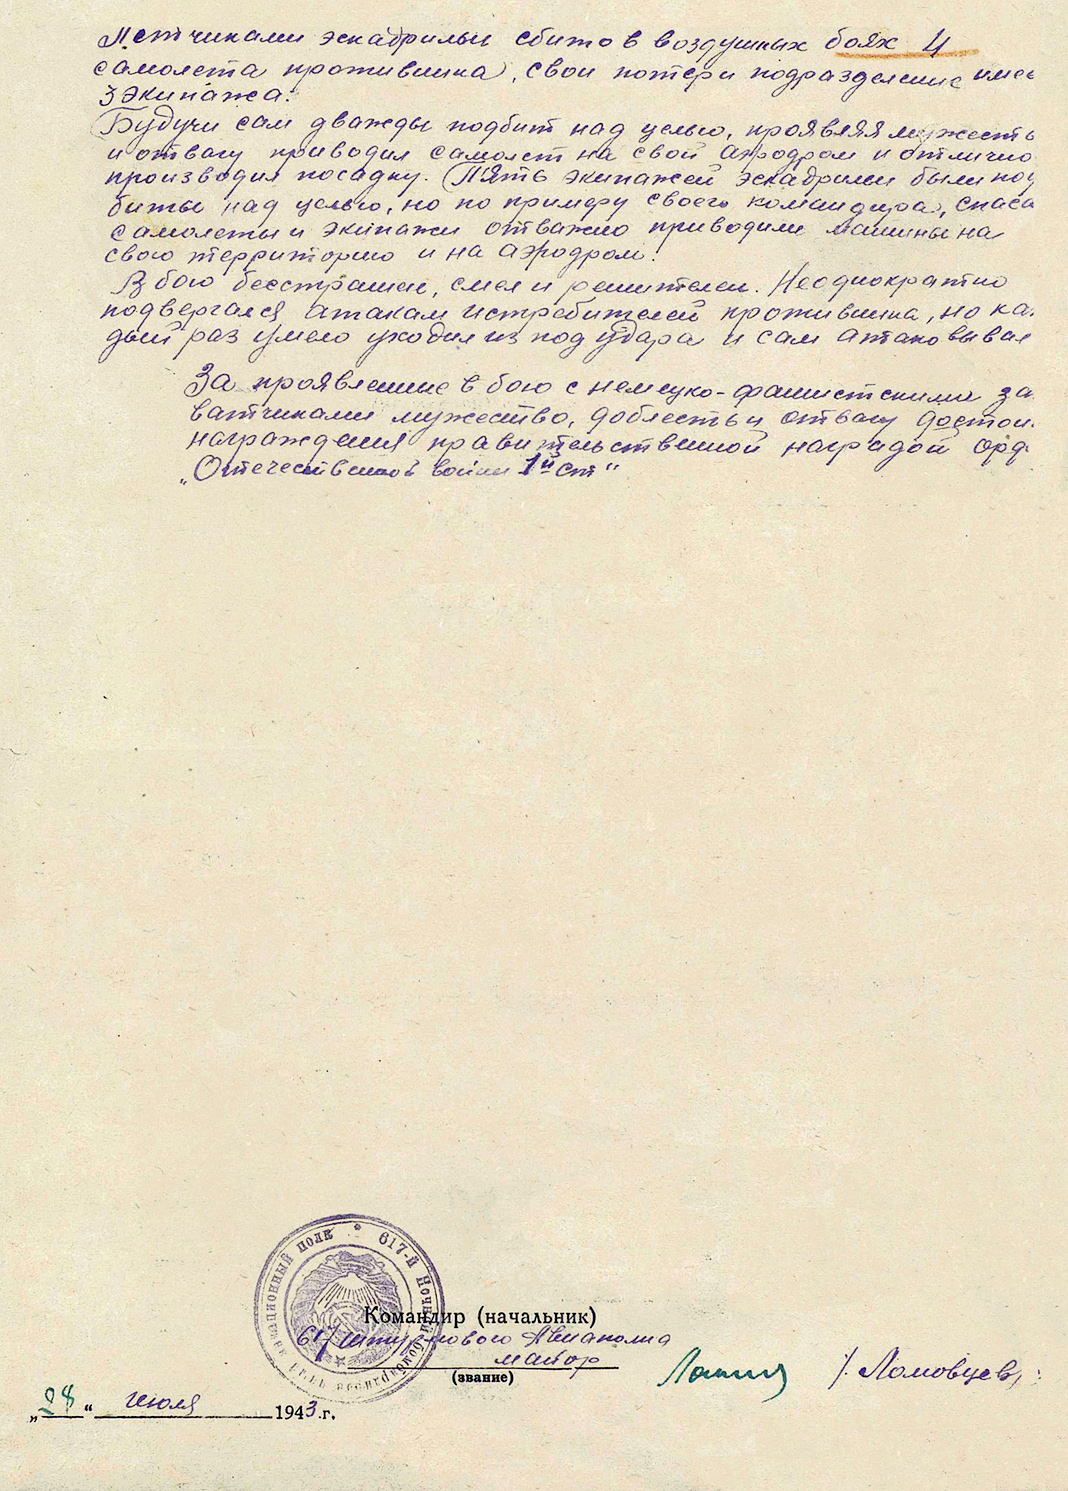 Летчиками эскадрильи сбито в воздушных боях 4
самолета противника, свои потери подразделение имее
3 экипажа.
Будучи сам дважды подбит над целью, проявляя мужеств
и отвагу приводил самолет на свой аэродром и отлично
производил посадку. Пять экипажей эскадрильи были под
биты над целью, но по примеру своего командира, спаса
самолеты и экипажи отважно приводили машины на
свою территорию и на аэродром.
В бою бесстрашен, смел и решителен. Неоднократно
подвергался атакам истребителей противника, но ка
дый раз умело уходил из под удара и сам атаковывал
За проявленные в бою с немецко-фашистскими за
ватчиками мужество, доблесть и отвагу достои
награждения правительственной наградой орд
„Отечественной войны 1й ст"
617-й Ночной Бомбардировочный авиационный полк
Командир (начальник)
617 штурмового Авиаполка
майор
(звание)
/. Ломовцев/:
„28" июля 1943 г.